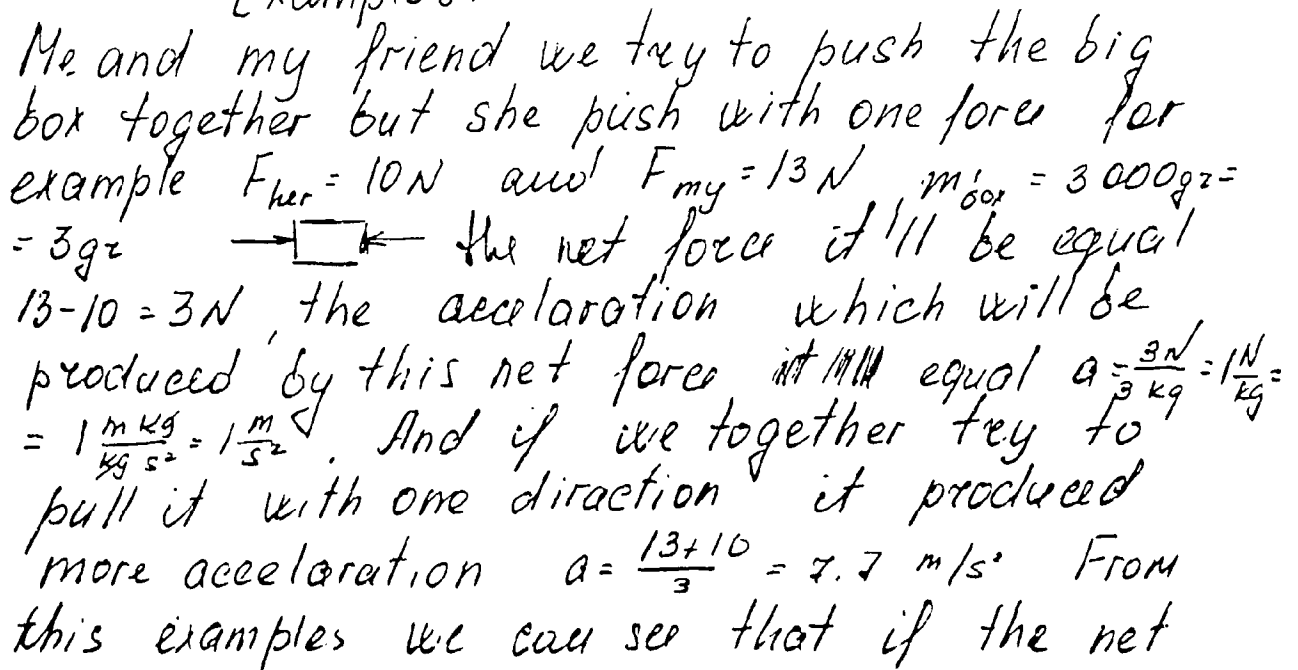 Examples.
Me and my friend we try to push the big
box together but she push with one force for
example F her = 10N and F my = 13N, m box = 3000gr =
= 3gr the net force it'll be equal
13-10 = 3N, the accelaration which will be
produced by this net force equal a = 3N/3 kg = 1 N/kg =
= 1 m kg/kg s² = 1 m/s². And if we together try to
pull it with one diraction it produced
more accelaration a = 13+10/3 = 7.7 m/s² From
this examples we can see that if the net